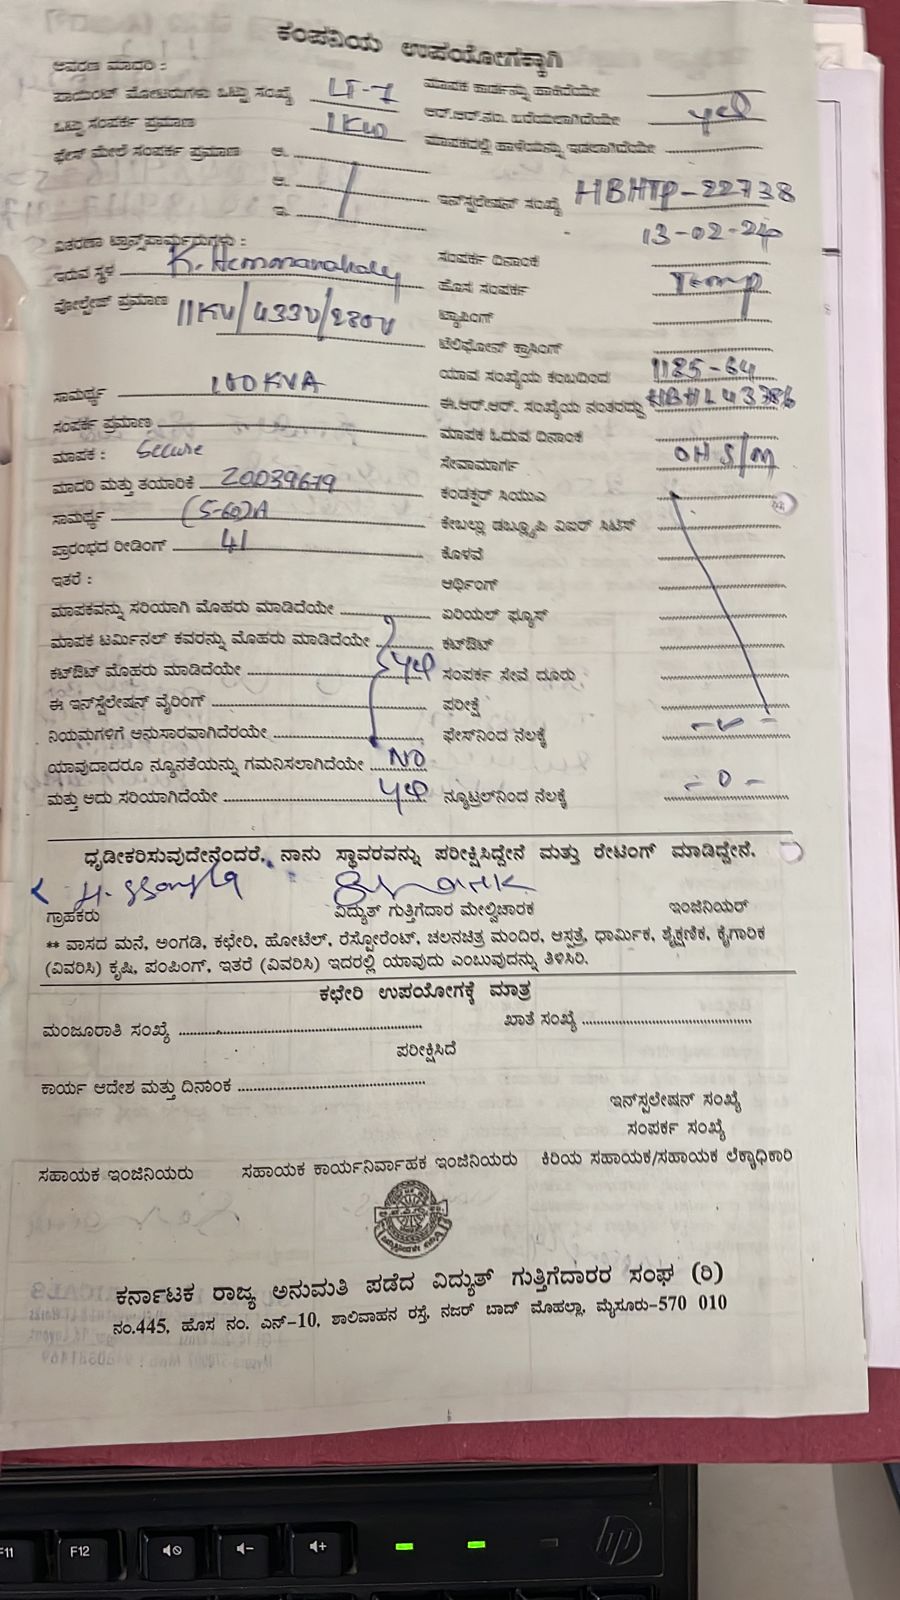 ಕಂಪನಿಯ ಉಪಯೋಗಕ್ಕಾಗಿ
ಆವರಣ ಮಾದರಿ :
ಪಾಯಿಂಟ್ ಮೋಟರುಗಳು ಒಟ್ಟು ಸಂಖ್ಯೆ LT-7 ಮಾಪಕ ಕಾರ್ಡನ್ನು ಹಾಕಿದೆಯೇ
ಒಟ್ಟು ಸಂಪರ್ಕ ಪ್ರಮಾಣ 1KW ಆರ್.ಆರ್.ನಂ. ಬರೆಯಲಾಗಿದೆಯೇ yes
ಫೇಸ್ ಮೇಲೆ ಸಂಪರ್ಕ ಪ್ರಮಾಣ ಅ. ಮಾಪಕದಲ್ಲಿ ಹಾಳೆಯನ್ನು ಇಡಲಾಗಿದೆಯೇ
ಆ. ಇನ್‌ಸ್ಟಲೇಷನ್ ಸಂಖ್ಯೆ HBHTP-22738
ಇ. 13-02-24
ವಿತರಣಾ ಟ್ರಾನ್ಸ್‌ಫಾರ್ಮರುಗಳು : ಸಂಪರ್ಕ ದಿನಾಂಕ
ಇರುವ ಸ್ಥಳ K. Hemmanahally ಹೊಸ ಸಂಪರ್ಕ Temp
ವೋಲ್ಟೇಜ್ ಪ್ರಮಾಣ 11KV/433V/230V ಟ್ಯಾಪಿಂಗ್
ಟೆಲಿಫೋನ್ ಕ್ರಾಸಿಂಗ್
ಸಾಮರ್ಥ್ಯ 100KVA ಯಾವ ಸಂಖ್ಯೆಯ ಕಂಬದಿಂದ 1185-64
ಸಂಪರ್ಕ ಪ್ರಮಾಣ ಈ.ಆರ್.ಆರ್. ಸಂಖ್ಯೆಯ ನಂತರದ್ದು
ಮಾಪಕ : Secure ಮಾಪಕ ಓದುವ ದಿನಾಂಕ
ಮಾದರಿ ಮತ್ತು ತಯಾರಿಕೆ 20039679 ಸೇವಾಮಾರ್ಗ OH S/M
ಸಾಮರ್ಥ್ಯ (5-60)A ಕಂಡಕ್ಟರ್ ಸಿಯುಎ
ಪ್ರಾರಂಭದ ರೀಡಿಂಗ್ 41 ಕೇಬಲ್ಲು ಡಬ್ಲ್ಯೂಪಿ ವಿಐಆರ್ ಸಿಟಿಸ್
ಕೊಳವೆ
ಇತರೆ : ಆರ್ಥಿಂಗ್
ಮಾಪಕವನ್ನು ಸರಿಯಾಗಿ ಮೊಹರು ಮಾಡಿದೆಯೇ ಏರಿಯಲ್ ಫ್ಯೂಸ್
ಮಾಪಕ ಟರ್ಮಿನಲ್ ಕವರನ್ನು ಮೊಹರು ಮಾಡಿದೆಯೇ ಕಟ್‌ಔಟ್
ಕಟ್‌ಔಟ್ ಮೊಹರು ಮಾಡಿದೆಯೇ yes ಸಂಪರ್ಕ ಸೇವೆ ದೂರು
ಈ ಇನ್‌ಸ್ಟೆಲೇಷನ್ ವೈರಿಂಗ್ ಪರೀಕ್ಷೆ
ನಿಯಮಗಳಿಗೆ ಅನುಸಾರವಾಗಿದೆರಯೇ ಫೇಸ್‌ನಿಂದ ನೆಲಕ್ಕೆ
ಯಾವುದಾದರೂ ನ್ಯೂನತೆಯನ್ನು ಗಮನಿಸಲಾಗಿದೆಯೇ NO
ಮತ್ತು ಅದು ಸರಿಯಾಗಿದೆಯೇ yes ನ್ಯೂಟ್ರಲ್‌ನಿಂದ ನೆಲಕ್ಕೆ - 0 -
ಧೃಡೀಕರಿಸುವುದೇನೆಂದರೆ, ನಾನು ಸ್ಥಾವರವನ್ನು ಪರೀಕ್ಷಿಸಿದ್ದೇನೆ ಮತ್ತು ರೇಟಿಂಗ್ ಮಾಡಿದ್ದೇನೆ.
ಗ್ರಾಹಕರು ವಿದ್ಯುತ್ ಗುತ್ತಿಗೆದಾರ ಮೇಲ್ವಿಚಾರಕ ಇಂಜಿನಿಯರ್
** ವಾಸದ ಮನೆ, ಅಂಗಡಿ, ಕಛೇರಿ, ಹೋಟೆಲ್, ರೆಸ್ಟೋರೆಂಟ್, ಚಲನಚಿತ್ರ ಮಂದಿರ, ಆಸ್ಪತ್ರೆ, ಧಾರ್ಮಿಕ, ಶೈಕ್ಷಣಿಕ, ಕೈಗಾರಿಕ
(ವಿವರಿಸಿ) ಕೃಷಿ, ಪಂಪಿಂಗ್, ಇತರೆ (ವಿವರಿಸಿ) ಇದರಲ್ಲಿ ಯಾವುದು ಎಂಬುವುದನ್ನು ತಿಳಿಸಿರಿ.
ಕಛೇರಿ ಉಪಯೋಗಕ್ಕೆ ಮಾತ್ರ
ಮಂಜೂರಾತಿ ಸಂಖ್ಯೆ ಖಾತೆ ಸಂಖ್ಯೆ
ಪರೀಕ್ಷಿಸಿದೆ
ಕಾರ್ಯ ಆದೇಶ ಮತ್ತು ದಿನಾಂಕ
ಇನ್‌ಸ್ಪಲೇಷನ್ ಸಂಖ್ಯೆ
ಸಂಪರ್ಕ ಸಂಖ್ಯೆ
ಸಹಾಯಕ ಇಂಜಿನಿಯರು ಸಹಾಯಕ ಕಾರ್ಯನಿರ್ವಾಹಕ ಇಂಜಿನಿಯರು ಕಿರಿಯ ಸಹಾಯಕ/ಸಹಾಯಕ ಲೆಕ್ಕಾಧಿಕಾರಿ
ಕರ್ನಾಟಕ ರಾಜ್ಯ ಅನುಮತಿ ಪಡೆದ ವಿದ್ಯುತ್ ಗುತ್ತಿಗೆದಾರರ ಸಂಘ (ರಿ)
ನಂ.445, ಹೊಸ ನಂ. ಎನ್-10, ಶಾಲಿವಾಹನ ರಸ್ತೆ, ನಜರ್ ಬಾದ್ ಮೊಹಲ್ಲಾ, ಮೈಸೂರು-570 010
F11 F12 hp